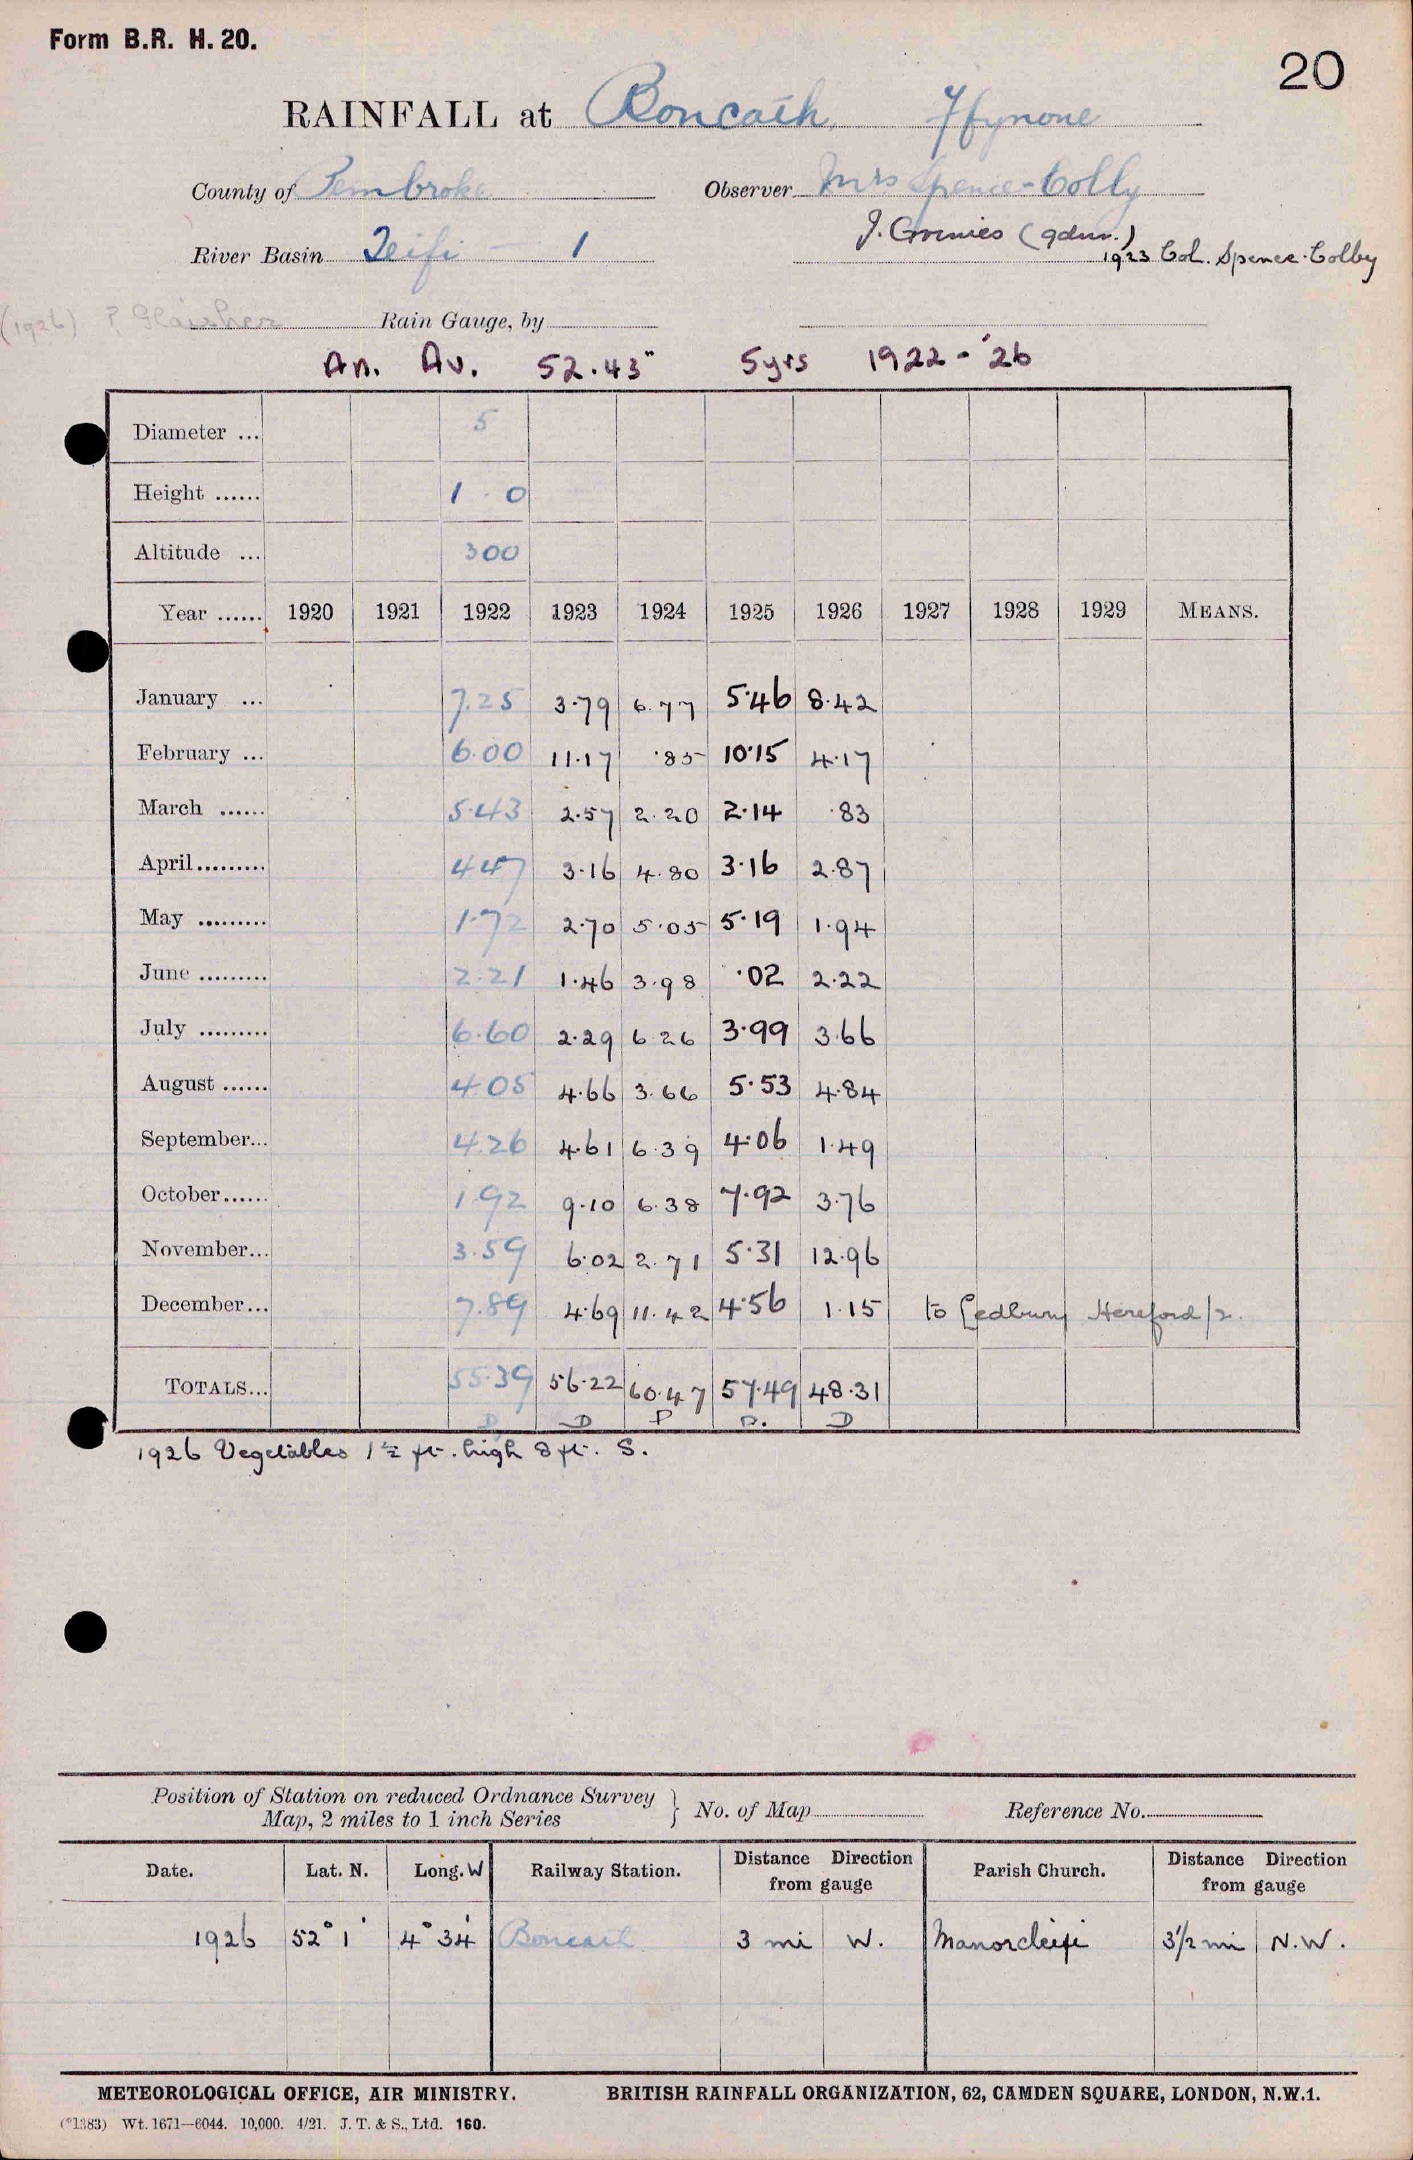 Form B.R. H. 20.
20
RAINFALL at Boncath, Ffynone
County of Pembroke Observer Mrs Spence-Colby
J. (gdnr.)
River Basin Teifi — 1
1923 Col. Spence-Colby
(1926) ? Glaisher Rain Gauge, by
An. Av. 52.43" 5yrs 1922-'26
Diameter ... 5
Height ...... 1 . 0
Altitude ... 300
Year ...... 1920 1921 1922 1923 1924 1925 1926 1927 1928 1929 MEANS.
January ... 7.25 3.79 6.77 5.46 8.42
February ... 6.00 11.17 .85 10.15 4.17
March ...... 5.43 2.57 2.20 2.14 .83
April......... 4.47 3.16 4.80 3.16 2.87
May ......... 1.72 2.70 5.05 5.19 1.94
June ......... 2.21 1.46 3.98 .02 2.22
July ......... 6.60 2.29 6.26 3.99 3.66
August ...... 4.05 4.66 3.66 5.53 4.84
September... 4.26 4.61 6.39 4.06 1.49
October...... 1.92 9.10 6.38 7.92 3.76
November... 3.59 6.02 2.71 5.31 12.96
December... 7.89 4.69 11.42 4.56 1.15 to Ledbury Hereford/2.
TOTALS... 55.39 56.22 60.47 57.49 48.31
D D P D. D
1926 Vegetables 1½ ft. high 8 ft. S.
Position of Station on reduced Ordnance Survey
Map, 2 miles to 1 inch Series } No. of Map Reference No.
Date. Lat. N. Long. W Railway Station. Distance Direction from gauge Parish Church. Distance Direction from gauge
1926 52° 1' 4° 34' Boncath 3 mi W. Manordeifi 3½ mi N.W.
METEOROLOGICAL OFFICE, AIR MINISTRY. BRITISH RAINFALL ORGANIZATION, 62, CAMDEN SQUARE, LONDON, N.W.1.
(*1383) Wt. 1671—6044. 10,000. 4/21. J. T. & S., Ltd. 160.